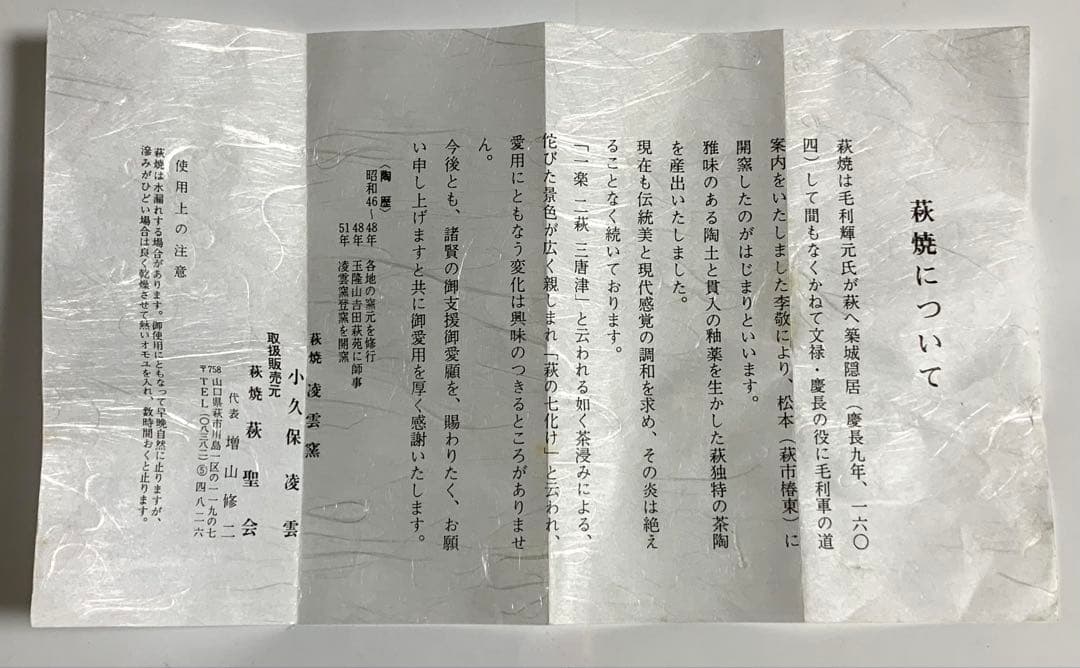 萩焼について
萩焼は毛利輝元氏が萩へ築城隠居（慶長九年、一六〇
四）して間もなくかねて文禄・慶長の役に毛利軍の道
案内をいたしました李敬により、松本（萩市椿東）に
開窯したのがはじまりといいます。
雅味のある陶土と貫入の釉薬を生かした萩独特の茶陶
を産出いたしました。
現在も伝統美と現代感覚の調和を求め、その炎は絶え
ることなく続いております。
「一楽 二萩 三唐津」と云われる如く茶浸みによる、
侘びた景色が広く親しまれ「萩の七化け」と云われ、
愛用にともなう変化は興味のつきるところがありませ
ん。
今後とも、諸賢の御支援御愛顧を、賜わりたく、お願
い申し上げますと共に御愛用を厚く感謝いたします。
〈陶歴〉
昭和46〜48年 各地の窯元を修行
48年 玉隆山吉田萩苑に師事
51年 凌雲窯登窯を開窯
萩焼 凌雲窯
小久保凌雲
取扱販売元
萩焼萩聖会
代表 増山修二
〒758 山口県萩市川島一区の一一九の七
TEL（〇八三八二）⑤四八一六
使用上の注意
萩焼は水漏れする場合があります。御使用にともなって早晩自然に止りますが、
滲みがひどい場合は良く乾燥させて熱いオモユを入れ、数時間おくと止ります。